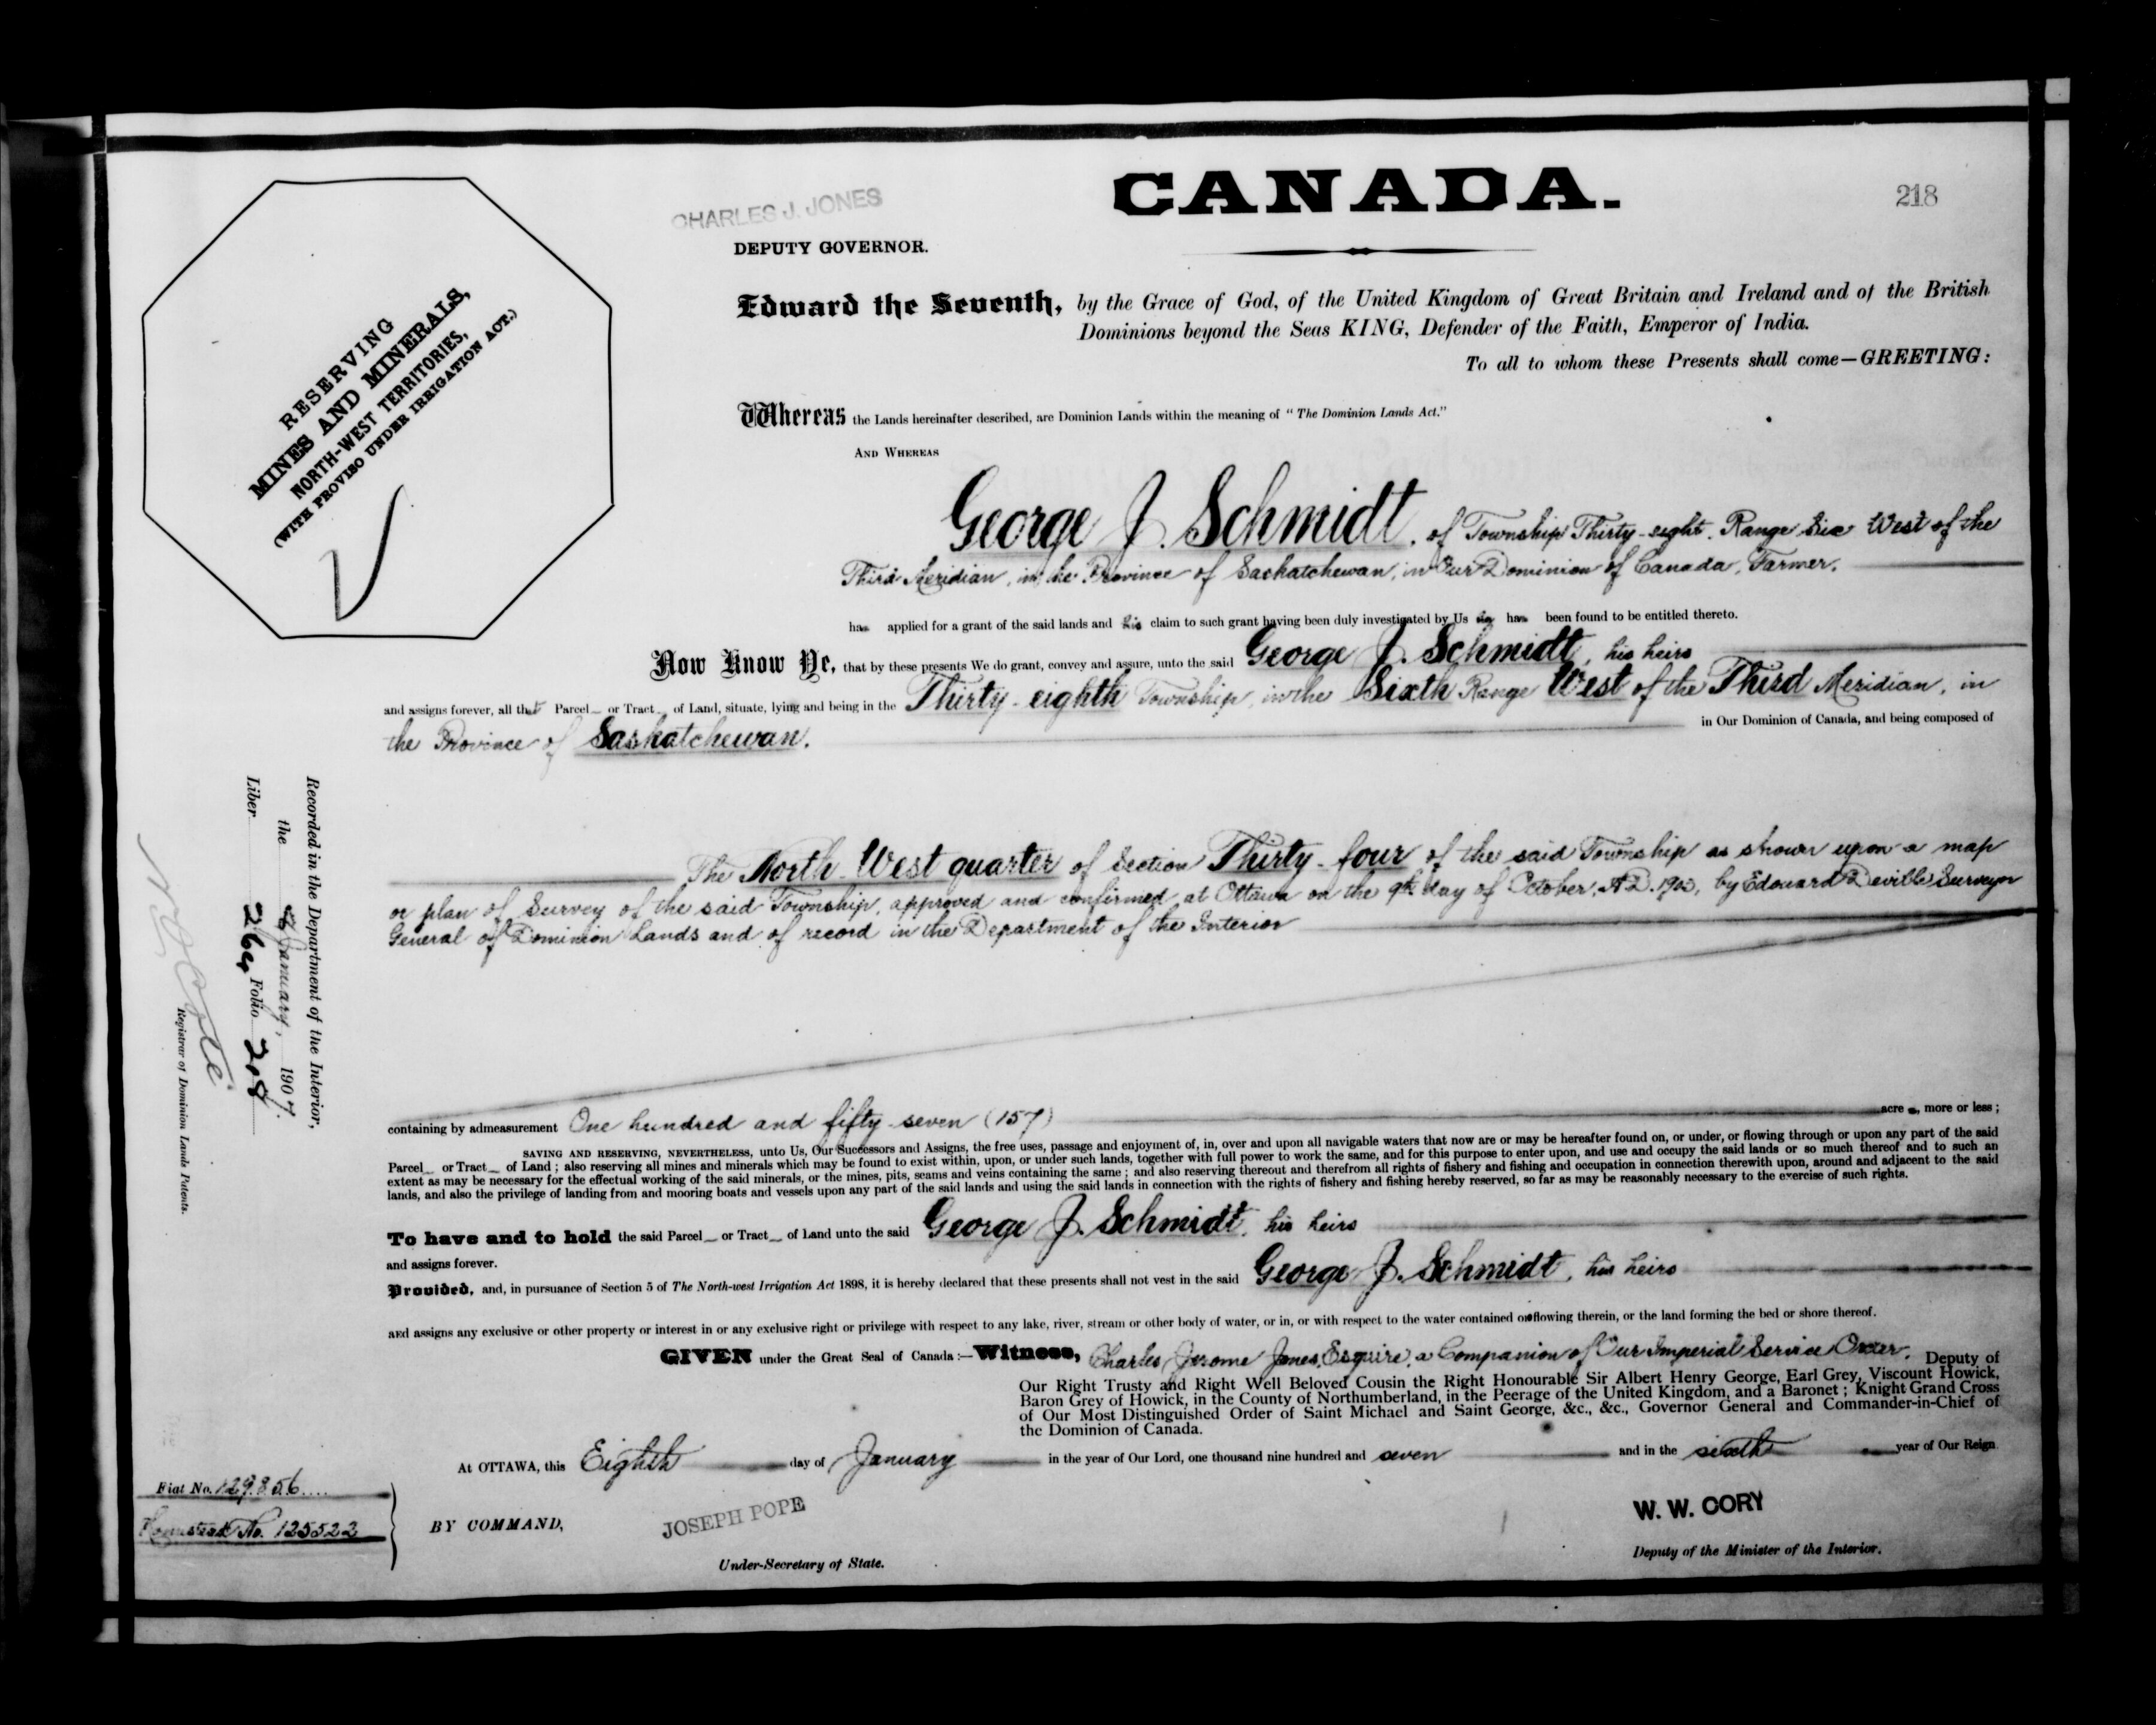 CANADA.
218
CHARLES J. JONES
DEPUTY GOVERNOR.
RESERVING
MINES AND MINERALS,
NORTH-WEST TERRITORIES,
(WITH PROVISO UNDER IRRIGATION ACT.)
Edward the Seventh, by the Grace of God, of the United Kingdom of Great Britain and Ireland and of the British
Dominions beyond the Seas KING, Defender of the Faith, Emperor of India.
To all to whom these Presents shall come—GREETING:
Whereas the Lands hereinafter described, are Dominion Lands within the meaning of "The Dominion Lands Act."
AND WHEREAS
George J. Schmidt, of Township Thirty-eight, Range Six West of the
Third Meridian, in the Province of Saskatchewan, in Our Dominion of Canada, Farmer,
has applied for a grant of the said lands and his claim to such grant having been duly investigated by Us he has been found to be entitled thereto.
Now Know Ye, that by these presents We do grant, convey and assure, unto the said George J. Schmidt, his heirs
and assigns forever, all that Parcel or Tract of Land, situate, lying and being in the Thirty-eighth Township, in the Sixth Range West of the Third Meridian, in
the Province of Saskatchewan, in Our Dominion of Canada, and being composed of
The North West quarter of Section Thirty-four of the said Township as shown upon a map
or plan of Survey of the said Township, approved and confirmed at Ottawa on the 9th day of October, A.D. 1903, by Edouard Deville Surveyor
General of Dominion Lands and of record in the Department of the Interior
containing by admeasurement One hundred and fifty seven (157) acres, more or less;
SAVING AND RESERVING, NEVERTHELESS, unto Us, Our Successors and Assigns, the free uses, passage and enjoyment of, in, over and upon all navigable waters that now are or may be hereafter found on, or under, or flowing through or upon any part of the said
Parcel or Tract of Land; also reserving all mines and minerals which may be found to exist within, upon, or under such lands, together with full power to work the same, and for this purpose to enter upon, and use and occupy the said lands or so much thereof and to such an
extent as may be necessary for the effectual working of the said minerals, or the mines, pits, seams and veins containing the same; and also reserving thereout and therefrom all rights of fishery and fishing and occupation in connection therewith upon, around and adjacent to the said
lands, and also the privilege of landing from and mooring boats and vessels upon any part of the said lands and using the said lands in connection with the rights of fishery and fishing hereby reserved, so far as may be reasonably necessary to the exercise of such rights.
To have and to hold the said Parcel or Tract of Land unto the said George J. Schmidt, his heirs
and assigns forever.
Provided, and, in pursuance of Section 5 of The North-west Irrigation Act 1898, it is hereby declared that these presents shall not vest in the said George J. Schmidt, his heirs
and assigns any exclusive or other property or interest in or any exclusive right or privilege with respect to any lake, river, stream or other body of water, or in, or with respect to the water contained or flowing therein, or the land forming the bed or shore thereof.
GIVEN under the Great Seal of Canada:—Witness, Charles Jerome Jones, Esquire, a Companion of Our Imperial Service Order, Deputy of
Our Right Trusty and Right Well Beloved Cousin the Right Honourable Sir Albert Henry George, Earl Grey, Viscount Howick,
Baron Grey of Howick, in the County of Northumberland, in the Peerage of the United Kingdom, and a Baronet; Knight Grand Cross
of Our Most Distinguished Order of Saint Michael and Saint George, &c., &c., Governor General and Commander-in-Chief of
the Dominion of Canada.
At OTTAWA, this Eighth day of January in the year of Our Lord, one thousand nine hundred and seven and in the sixth year of Our Reign
BY COMMAND,
JOSEPH POPE
Under-Secretary of State.
W. W. CORY
Deputy of the Minister of the Interior.
Fiat No. 129.856
Homestead No. 125522
Recorded in the Department of the Interior,
the January, 1907
Liber Folio 218
N. O. Coté
Registrar of Dominion Lands Patents.